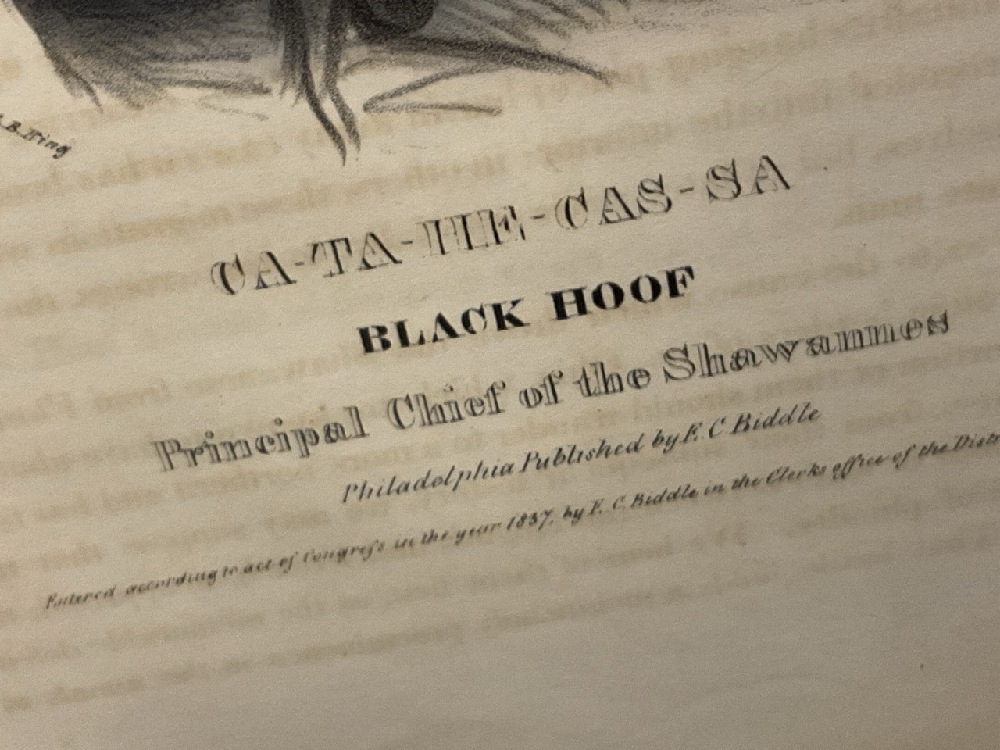 B. King
CA-TA-HE-CAS-SA
BLACK HOOF
Principal Chief of the Shawannoes
Philadelphia Published by E. C Biddle
Entered according to act of Congress in the year 1837, by E. C. Biddle in the Clerks office of the Distr